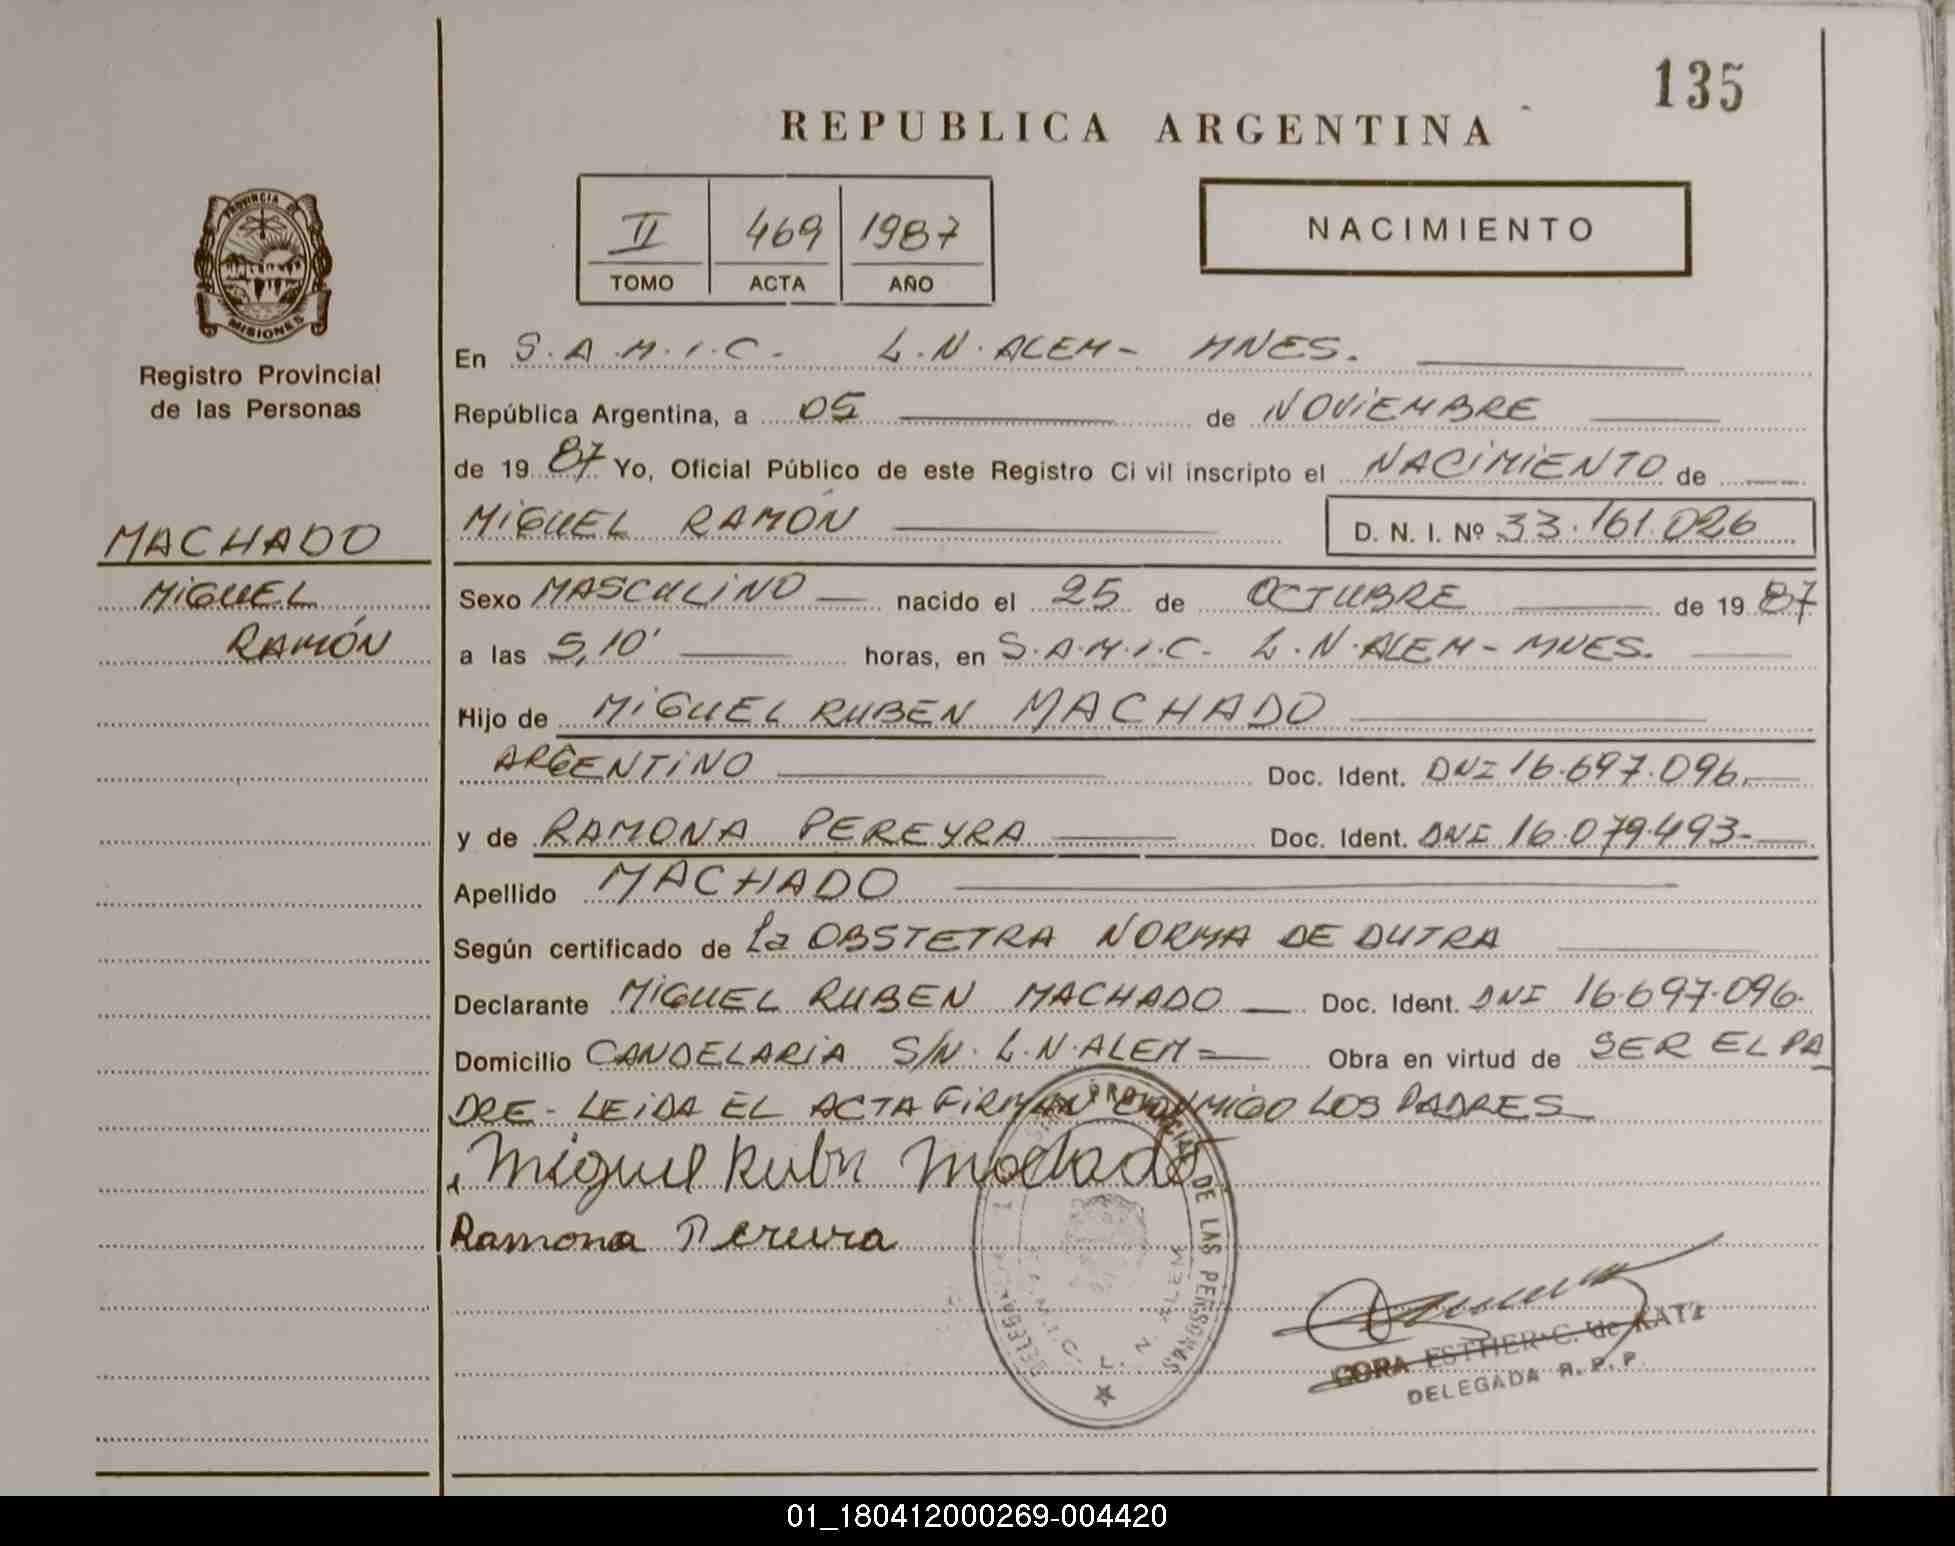 135
REPUBLICA ARGENTINA
II 469 1987
TOMO ACTA AÑO
NACIMIENTO
PROVINCIA DE
MISIONES
Registro Provincial
de las Personas
MACHADO
MIGUEL
RAMÓN
En S.A.M.I.C. L.N.ALEM- MNES.
República Argentina, a 05 de NOVIEMBRE
de 1987 Yo, Oficial Público de este Registro Civil inscripto el NACIMIENTO de
MIGUEL RAMÓN D. N. I. Nº 33.161.026
Sexo MASCULINO nacido el 25 de OCTUBRE de 1987
a las 5,10' horas, en S.A.M.I.C. L.N.ALEM- MNES.
Hijo de MIGUEL RUBEN MACHADO
ARGENTINO Doc. Ident. DNI 16.697.096.
y de RAMONA PEREYRA Doc. Ident. DNI 16.079.493-
Apellido MACHADO
Según certificado de La OBSTETRA NORMA DE DUTRA
Declarante MIGUEL RUBEN MACHADO Doc. Ident. DNI 16.697.096.
Domicilio CANDELARIA S/N. L.N.ALEM- Obra en virtud de SER EL PA
DRE- LEIDA EL ACTA FIRMAN CONMIGO LOS PADRES
Miguel Rubn Machado
Ramona Pereira
PROVINCIAL DE LAS PERSONAS
S.A.M.I.C. L. N. ALEM
CORA ESTHER C. de KATZ
DELEGADA R. P. P.
01_180412000269-004420